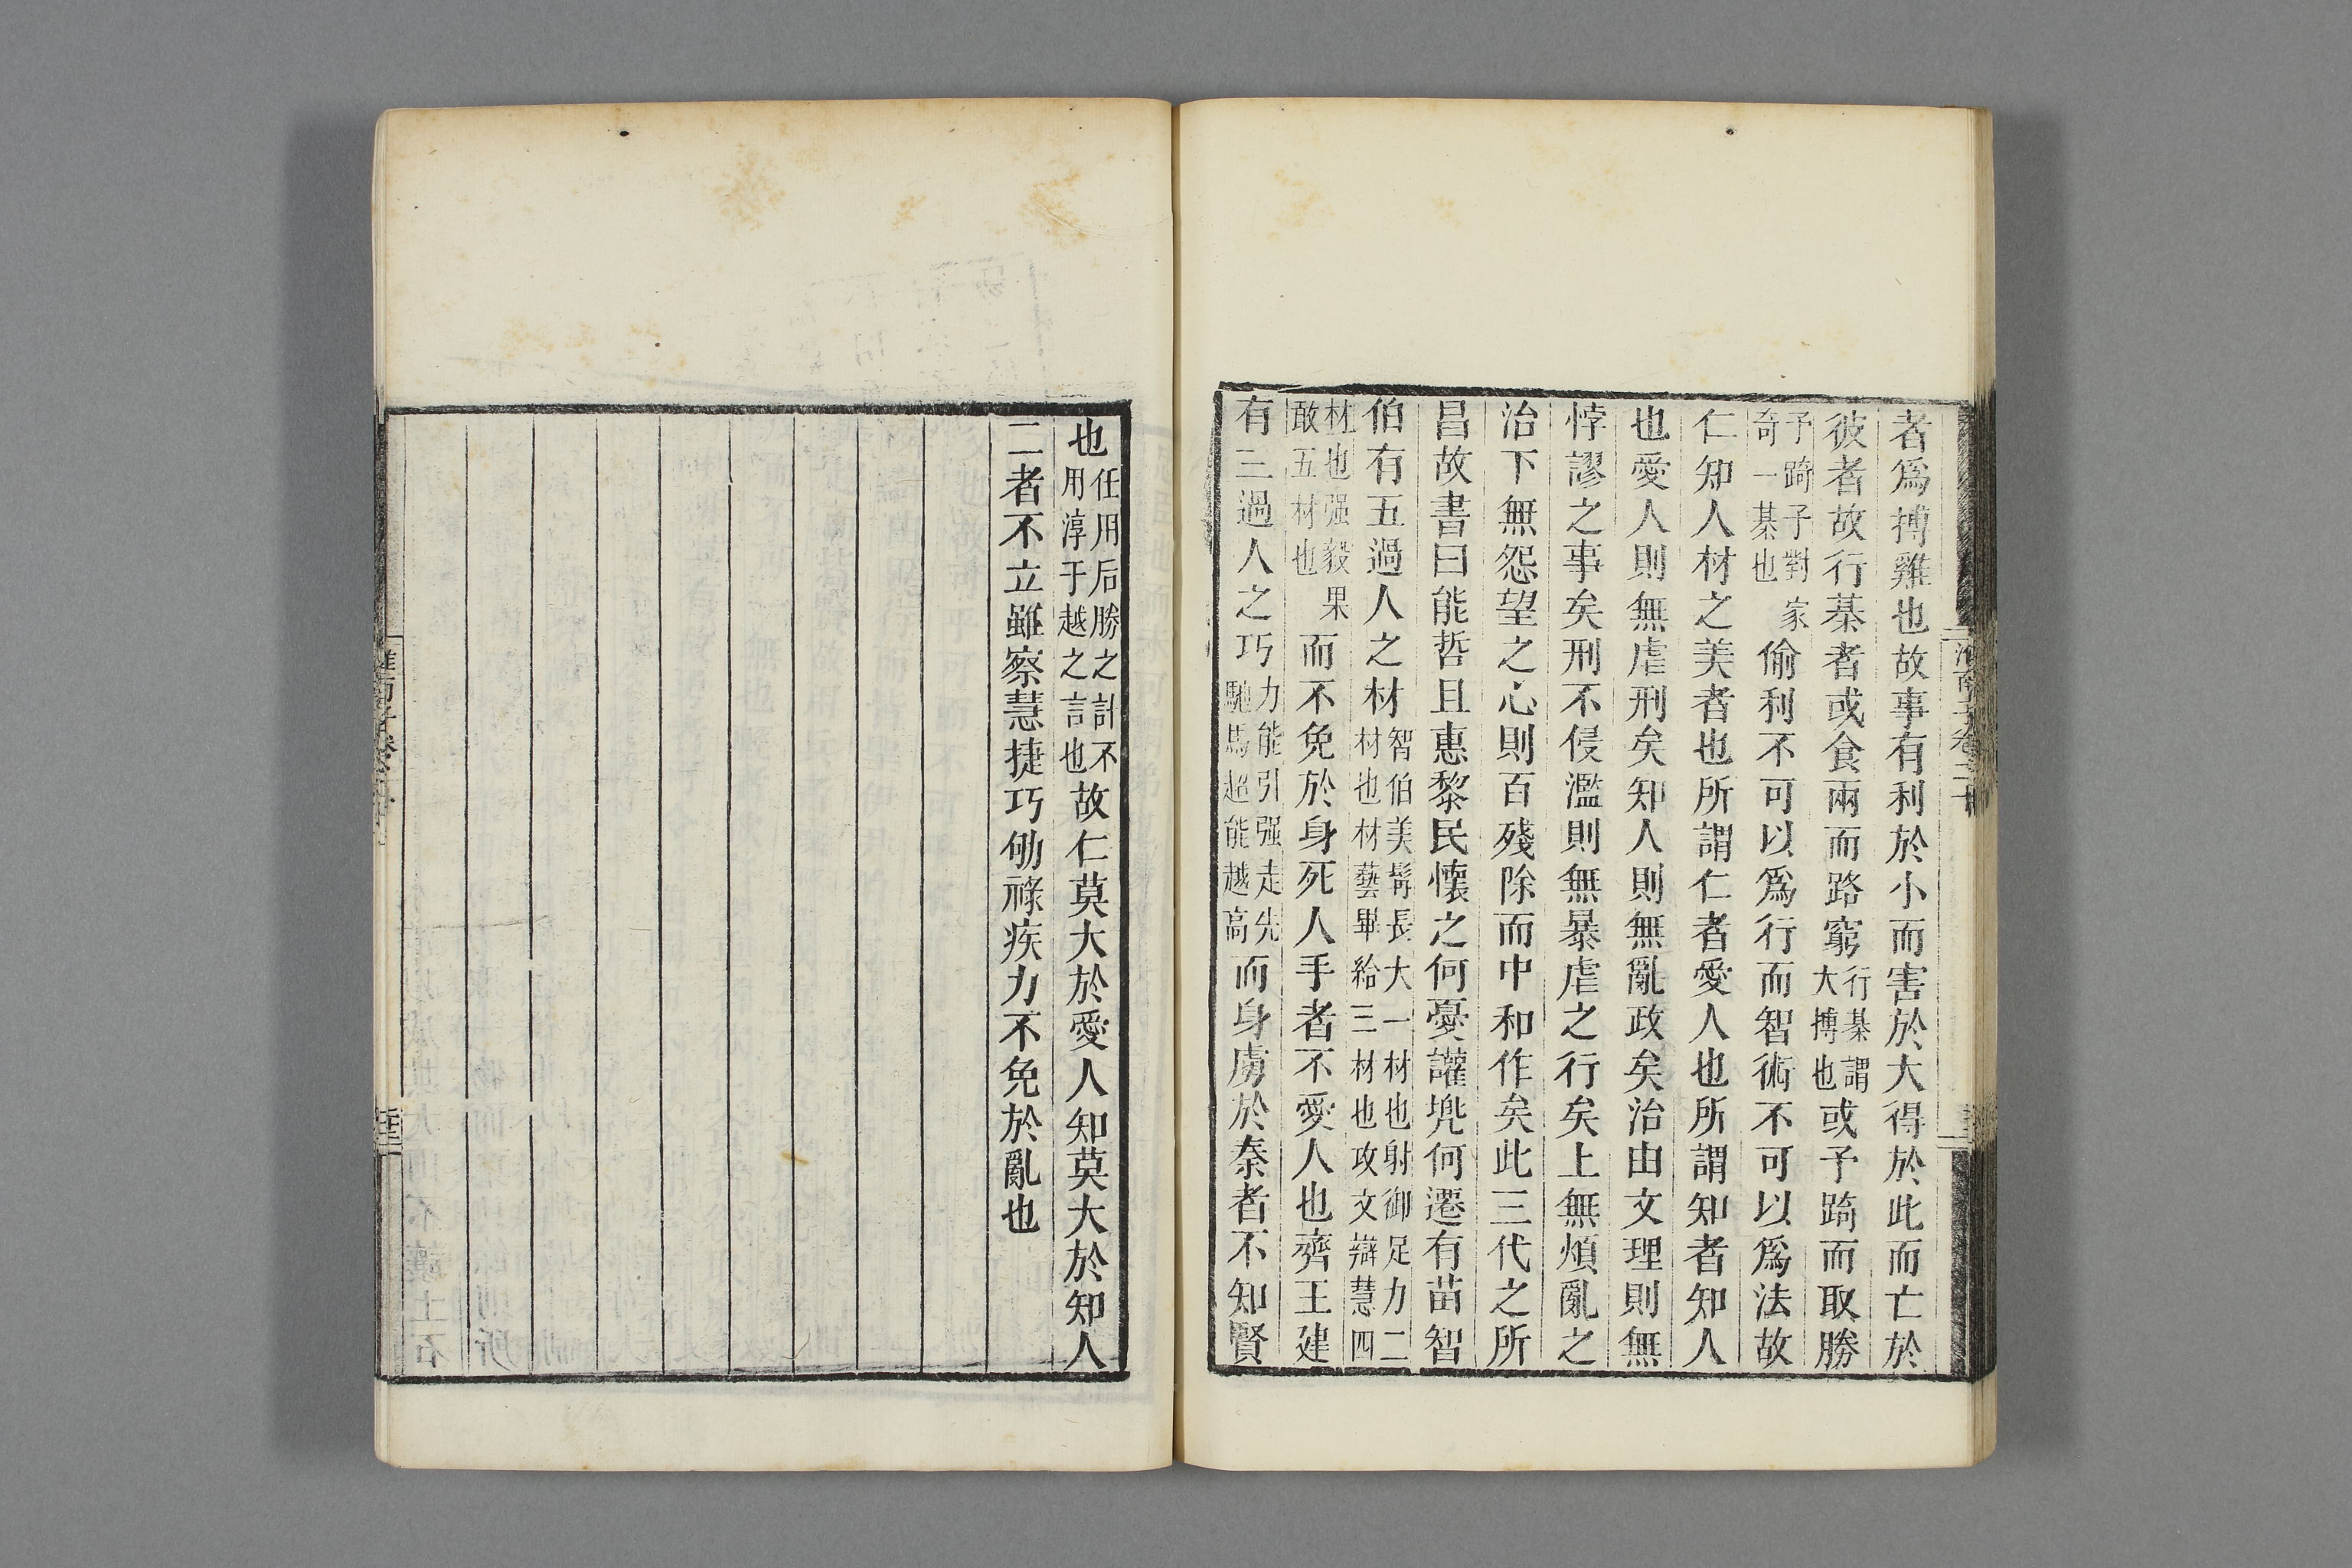 者爲搏雞也故事有利於小而害於大得於此而亡於
彼者故行棊者或食兩而路窮行棊謂大博也或予踦而取勝
予踦予對家奇一棊也偷利不可以爲行而智術不可以爲法故
仁知人材之美者也所謂仁者愛人也所謂知者知人
也愛人則無虐刑矣知人則無亂政矣治由文理則無
悖謬之事矣刑不侵濫則無暴虐之行矣上無煩亂之
治下無怨望之心則百殘除而中和作矣此三代之所
昌故書曰能哲且惠黎民懷之何憂讙兠何遷有苗智
伯有五過人之材智伯美髯長大一材也射御足力二材也材藝畢給三材也攻文辯慧四
材也强毅果敢五材也而不免於身死人手者不愛人也齊王建
有三過人之巧力能引强走先馳馬超能越高而身虜於秦者不知賢
淮南子卷二十
也任用后勝之計不用淳于越之言也故仁莫大於愛人知莫大於知人
二者不立雖察慧捷巧劬祿疾力不免於亂也